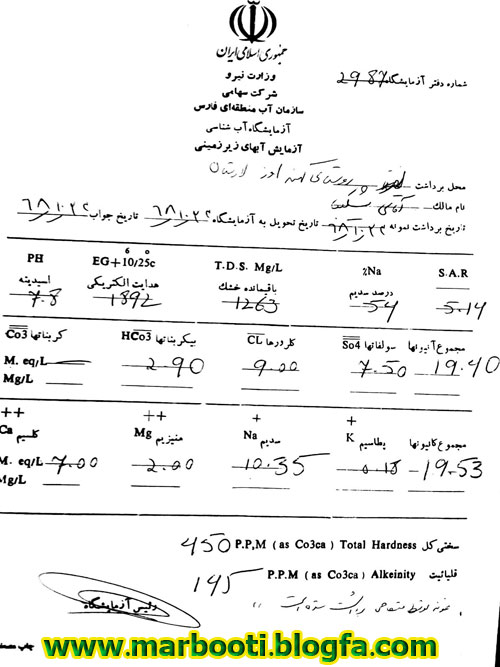 جمهوری اسلامی ایران
وزارت نیرو
شرکت سهامی
سازمان آب منطقه‌ای فارس
آزمایشگاه آب شناسی
آزمایش آبهای زیرزمینی
شماره دفتر آزمایشگاه 2987
محل برداشت روستای کهنه اوز لارستان
نام مالک آقای
تاریخ برداشت نمونه ۶۸/۱۰/۲۲ تاریخ تحویل به آزمایشگاه ۶۸/۱۰/۲۲ تاریخ جواب ۶۸/۱۰/۲۲
S.A.R %Na T.D.S. Mg/L EG+10/25c 6 0 PH
درصد سدیم باقیمانده خشک هدایت الکتریکی اسیدیته
5.14 54 1263 1892 7.8
مجموع آنیونها سولفاتها So4 کلرورها CL بیکربناتها HCo3 کربناتها Co3
M. eq/L 2.90 9.00 7.50 19.40
Mg/L
++ ++ + +
مجموع کاتیونها پطاسیم K سدیم Na منیزیم Mg کلسیم Ca
M. eq/L 7.00 2.00 10.35 0.18 19.53
Mg/L
450 P.P,M ( as Co3ca ) Total Hardness سختی کل
145 P.P.M ( as Co3ca ) Alkeinity قلیائیت
نمونه توسط متقاضی برداشت شده است
رئیس آزمایشگاه
www.marbooti.blogfa.com